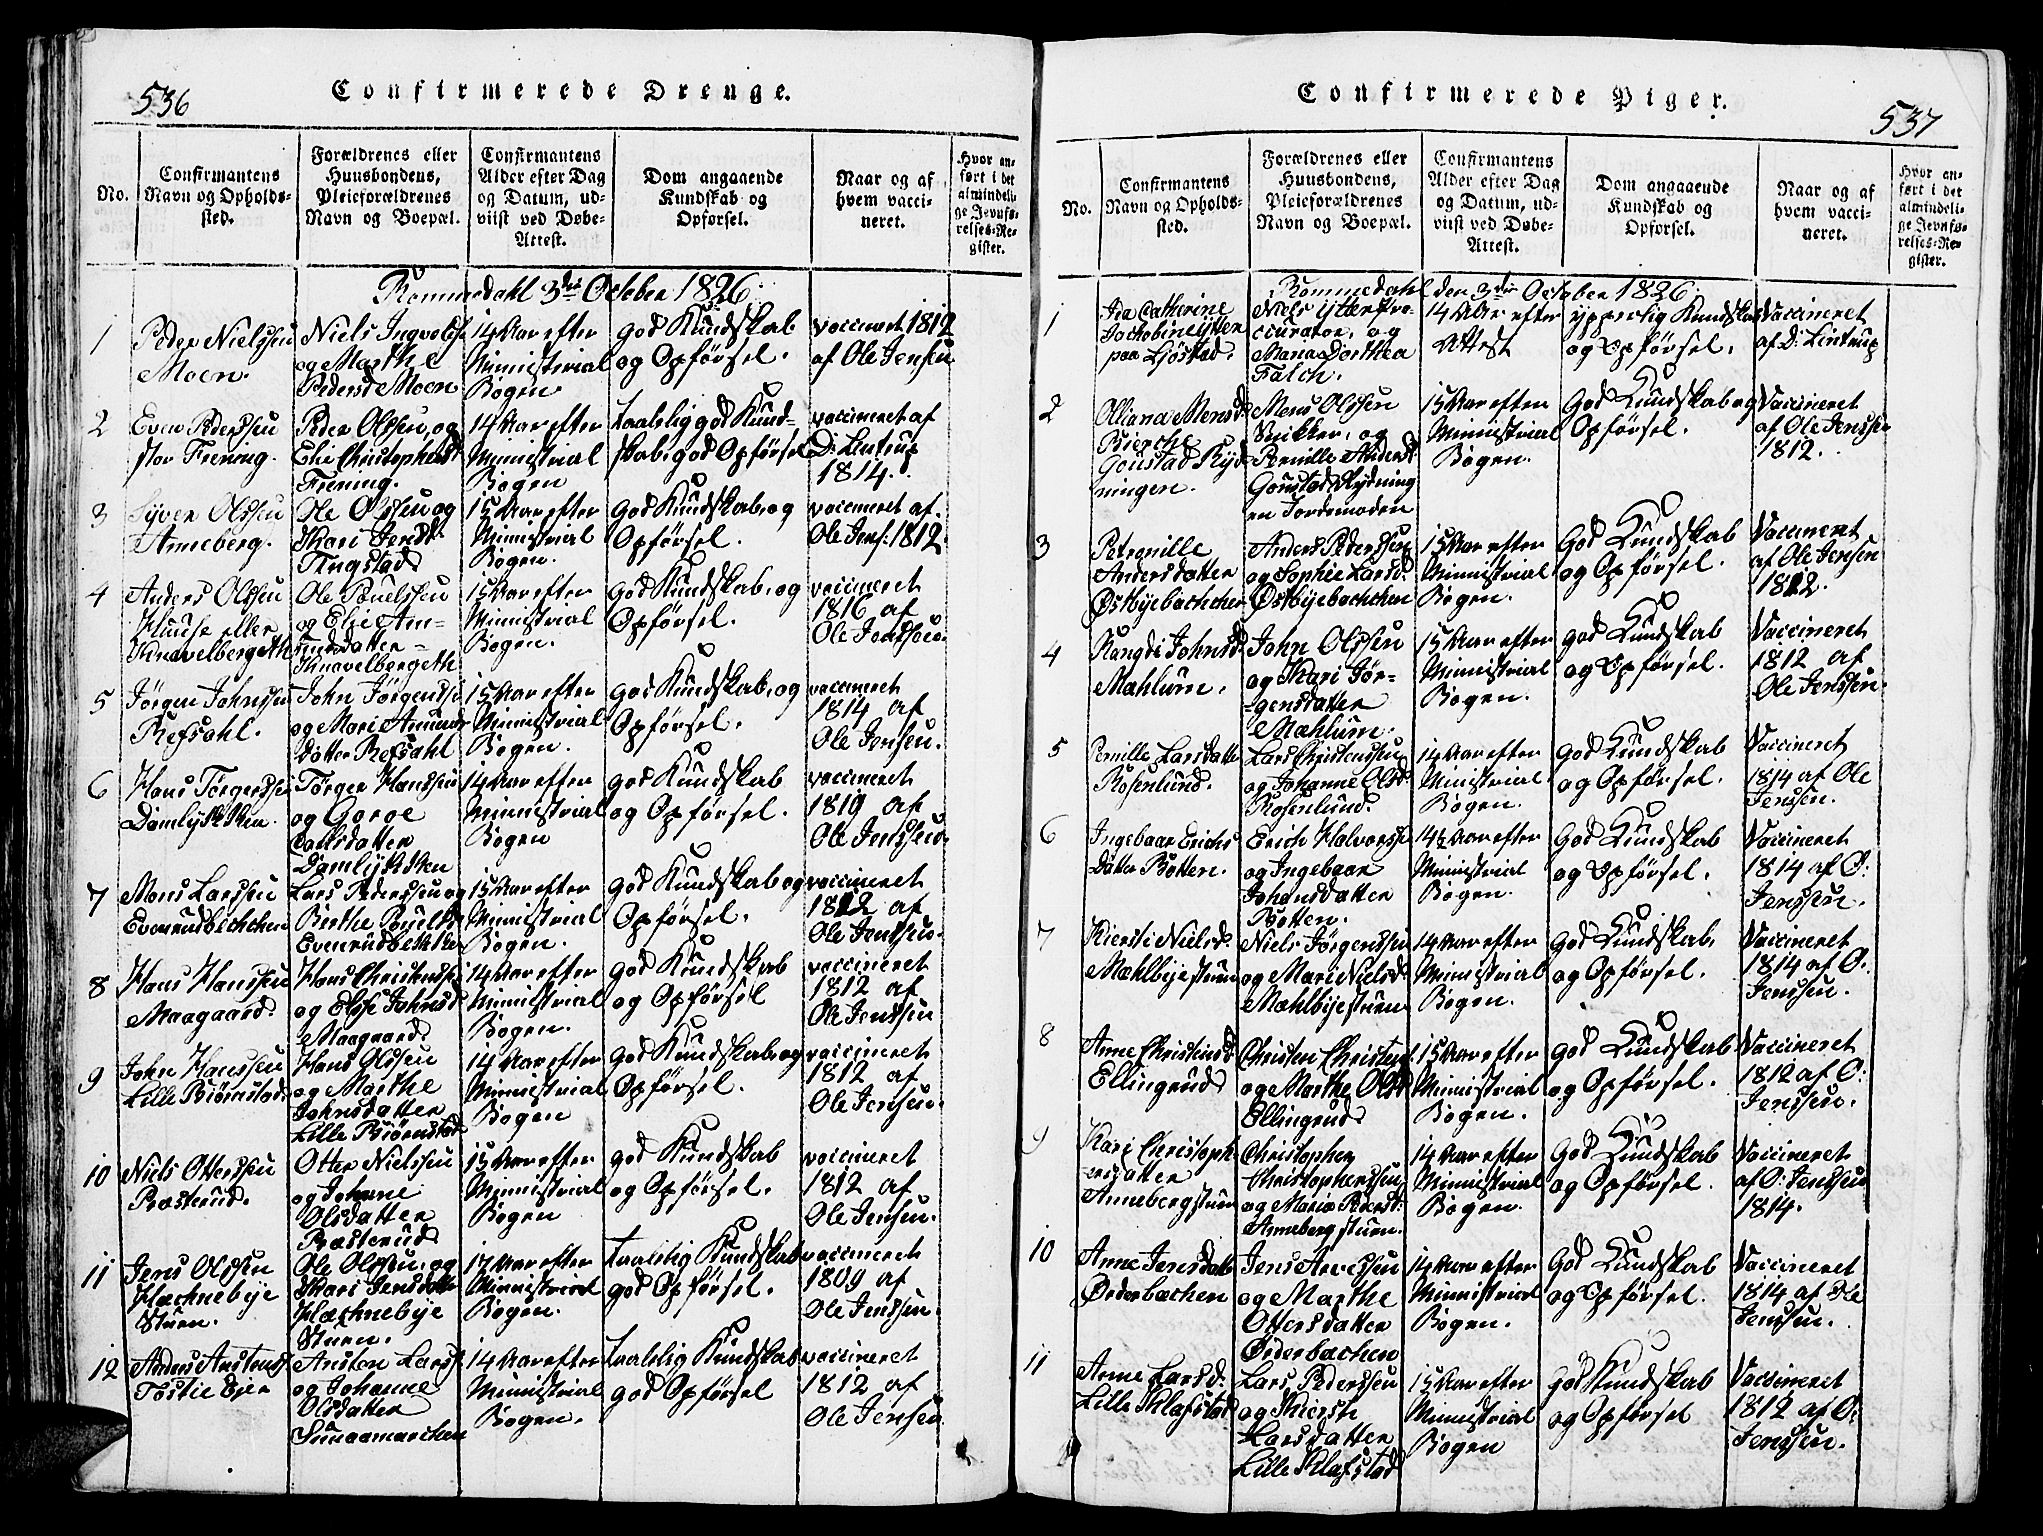 536
Confirmerede Drenge.
No.
Confirmantens
Navn og Opholds-
sted.
Forældrenes eller
Huusbondens,
Pleieforældrenes
Navn og Boepæl.
Confirmantens
Alder efter Dag
og Datum, ud-
viist ved Døbe-
Attest.
Dom angaaende
Kundskab og
Opførsel.
Naar og af
hvem vacci-
neret.
Hvor an-
ført i det
almindeli-
ge Jevnfø-
relses-Re-
gister.
Rommedahl 3die October 1826.
1
Peder Nielssen
Moen.
Niels Ingvoldss
og Marthe
Pedersd Moen
14 Aar efter
Ministerial
Bogen.
god Kundskab
og Opførsel.
vaccineret 1812
af Ole Jensen
2
Even Pederssen
stor Frening.
Peder Olssen og
Elie Christophersd
Frening.
14 Aar efter
Ministrial
Bogen
Taalelig god Kund-
skab, god Opførsel
vaccineret af
D: Lintrup
1814.
3
Syver Olssen
Anneberg.
Ole Olssen og
Kari Jensd.
Tingstad
15 Aar efter
Ministrial
Bogen.
god Kundskab, og
Opførsel.
vaccineret af
Ole Jens: 1812.
4
Anders Olssen
Huuse eller
Knavelbergeth
Ole Pouelssen
og Elie Am-
undsdatter
Knavelbergeth
15 Aar efter
Ministrial
Bogen.
god Kundskab, og
Opførsel.
vaccineret
1816 af
Ole Jenssen.
5
Jörgen Johnssen
Refsahl.
John Jörgenss
og Mari Amunds
Datter Refsahl
15 Aar efter
Ministrial
Bogen.
god Kundskab, og
Opførsel.
vaccineret
1814 af
Ole Jensen.
6
Hans Törgerssen
Damlykken.
Törger Hanssen
og Goroe
Larsdatter
Damlykken
14 Aar efter
Ministrial
Bogen
god Kundskab
og Opførsel.
vaccineret
1819 af
Ole Jenssen.
7
Mons Larssen
Evenrudbechchen
Lars Pederssen og
Berthe Pouelsd
Evenrudbekken
15 Aar efter
Ministrial
Bogen.
god Kundskab og
Opførsel.
vaccineret
1812 af
Ole Jenssen.
8
Hans Hanssen
Maagaard.
Hans Christenss
og Elsse Johnsd
Maagaard
14 Aar efter
Ministrial
Bogen.
god Kundskab
og Opførsel
vaccineret
1812 af
Ole Jenssen
9
John Hanssen
Lille Biörnstad.
Hans Olssen
og Marthe
Johnsdatter
Lille Biörnstad
14 Aar efter
Ministrial
Bogen
god Kundskab, og
Opførsel.
vaccineret
1812 af
Ole Jenssen.
10
Niels Otterssen
Bæsterud.
Otter Nielssen
og Johanne
Olsdatter
Bæsterud
15 Aar efter
Ministrial
Bogen
god Kundskab
og Opførsel.
vaccineret
1812 af
Ole Jensen.
11
Jens Olssen
Hæchnebye
Stuen.
Ole Olssen, og
Kari Jensdatter
Hæchnebye
Stuen.
17 Aar efter
Ministrial
Bogen.
Taalelig Kundskab
god Opførsel.
vaccineret
1809 af
Ole Jenssen.
12
Anders Anstenss
Tostie Eier
Ansten Larss
og Johanne
Olsdatter
14 Aar efter
Ministrial
Bogen.
Taalelig Kundskab
god Opførsel
vaccineret
1812 af
Ole Jensen
Confirmerede Piger.
537
No.
Confirmantens
Navn og Opholds-
sted.
Forældrenes eller
Huusbondens,
Pleieforældrenes
Navn og Boepæl.
Confirmantens
Alder efter Dag
og Datum, ud-
viist ved Døbe-
Attest.
Dom angaaende
Kundskab og
Opførsel.
Naar og af
hvem vacci-
neret.
Hvor an-
ført i det
almindeli-
ge Jevnfø-
relses-Re-
gister.
Rommedahl den 3die October 1826.
1
Ida Catherine
Jachobine Ytter
paa Ljöstad.
Niels Ytter Pro
curator, og
Maria Dorthea
Falch.
14 Aar efter
Attest
ypperlig Kundskab
og Opførsel.
Vaccineret
af D: Lintrup
2
Olliana Mensd.
Bierche
Gonstad Ryd-
ningen.
Mens Olssen
Snikker, og
Pernille Andersd
Gonstad Rydning
en Jordemoder
15 Aar efter
Ministrial
Bogen.
God Kundskab og
Opførsel.
Vaccineret
af Ole Jenssen
1812.
3
Petronille
Andersdatter
Østbyebachchen
Anders Pederssen
og Sophie Larsd.
Østbyebachchen
15 Aar efter
Ministrial
Bogen.
God Kundskab
og Opførsel.
Vaccineret
af Ole Jensen
1812.
4
Rangdi Johnsd.
Mæhlum.
John Olssen
og Kari Jör-
gensdatter
Mæhlum.
15 Aar efter
Ministrial
Bogen.
god Kundskab
og Opførsel.
Vaccineret
1812 af
Ole Jenssen.
5
Pernille Larsdatter
Rosenlund.
Lars Christenssen
og Johanne Olsd
Rosenlund.
14 Aar efter
Ministrial
Bogen.
god Kundskab
og Opførsel.
Vaccineret
1814 af Ole
Jenssen.
6
Ingebaar Erichs
Datter Botten.
Erich Halvorss
og Ingebaar
Johansdatter
Botten.
14½ Aar efter
Ministrial
Bogen.
God Kundskab
og Opførsel.
Vaccineret
1814 af O:
Jenssen.
7
Kiersti Nielsd.
Mæhlbyestuen
Niels Jörgenssen
og Mari Nielsd
Mæhlbyestuen
14 Aar efter
Ministrial
Bogen.
God Kundskab,
og Opførsel.
Vaccineret
1814 af O:
Jenssen.
8
Anne Christensd
Ellingrud
Christen Christens
og Marthe Olsd
Ellingrud
15 Aar efter
Ministrial
Bogen.
god Kundskab
og Opførsel.
Vaccineret
1812 af O:
Jenssen.
9
Kari Christoph
ersdatter
Annebergstuen
Christopher
Christopherssen
og Maria Pedersd:
Anneberg stuen.
14 Aar efter
Ministrial
Bogen.
God Kundskab
og Opførsel.
Vaccineret
af O: Jenssen
1814.
10
Anne Jensdatt
Örderbachen
Jens Arvessen
og Marthe
Ottersdatter
Örderbachen
14 Aar efter
Ministrial
Bogen.
God Kundskab
og Opførsel.
Vaccineret
1814 af Ole
Jenssen.
11
Anne Larsd.
Lille Klafstad
Lars Pederssen
og Kiersti
Larsdatter
Lille Klafstad
15 Aar efter
Ministrial
Bogen
god Kundskab
og Opførsel
Vaccineret
1812 af O:
Jenssen.